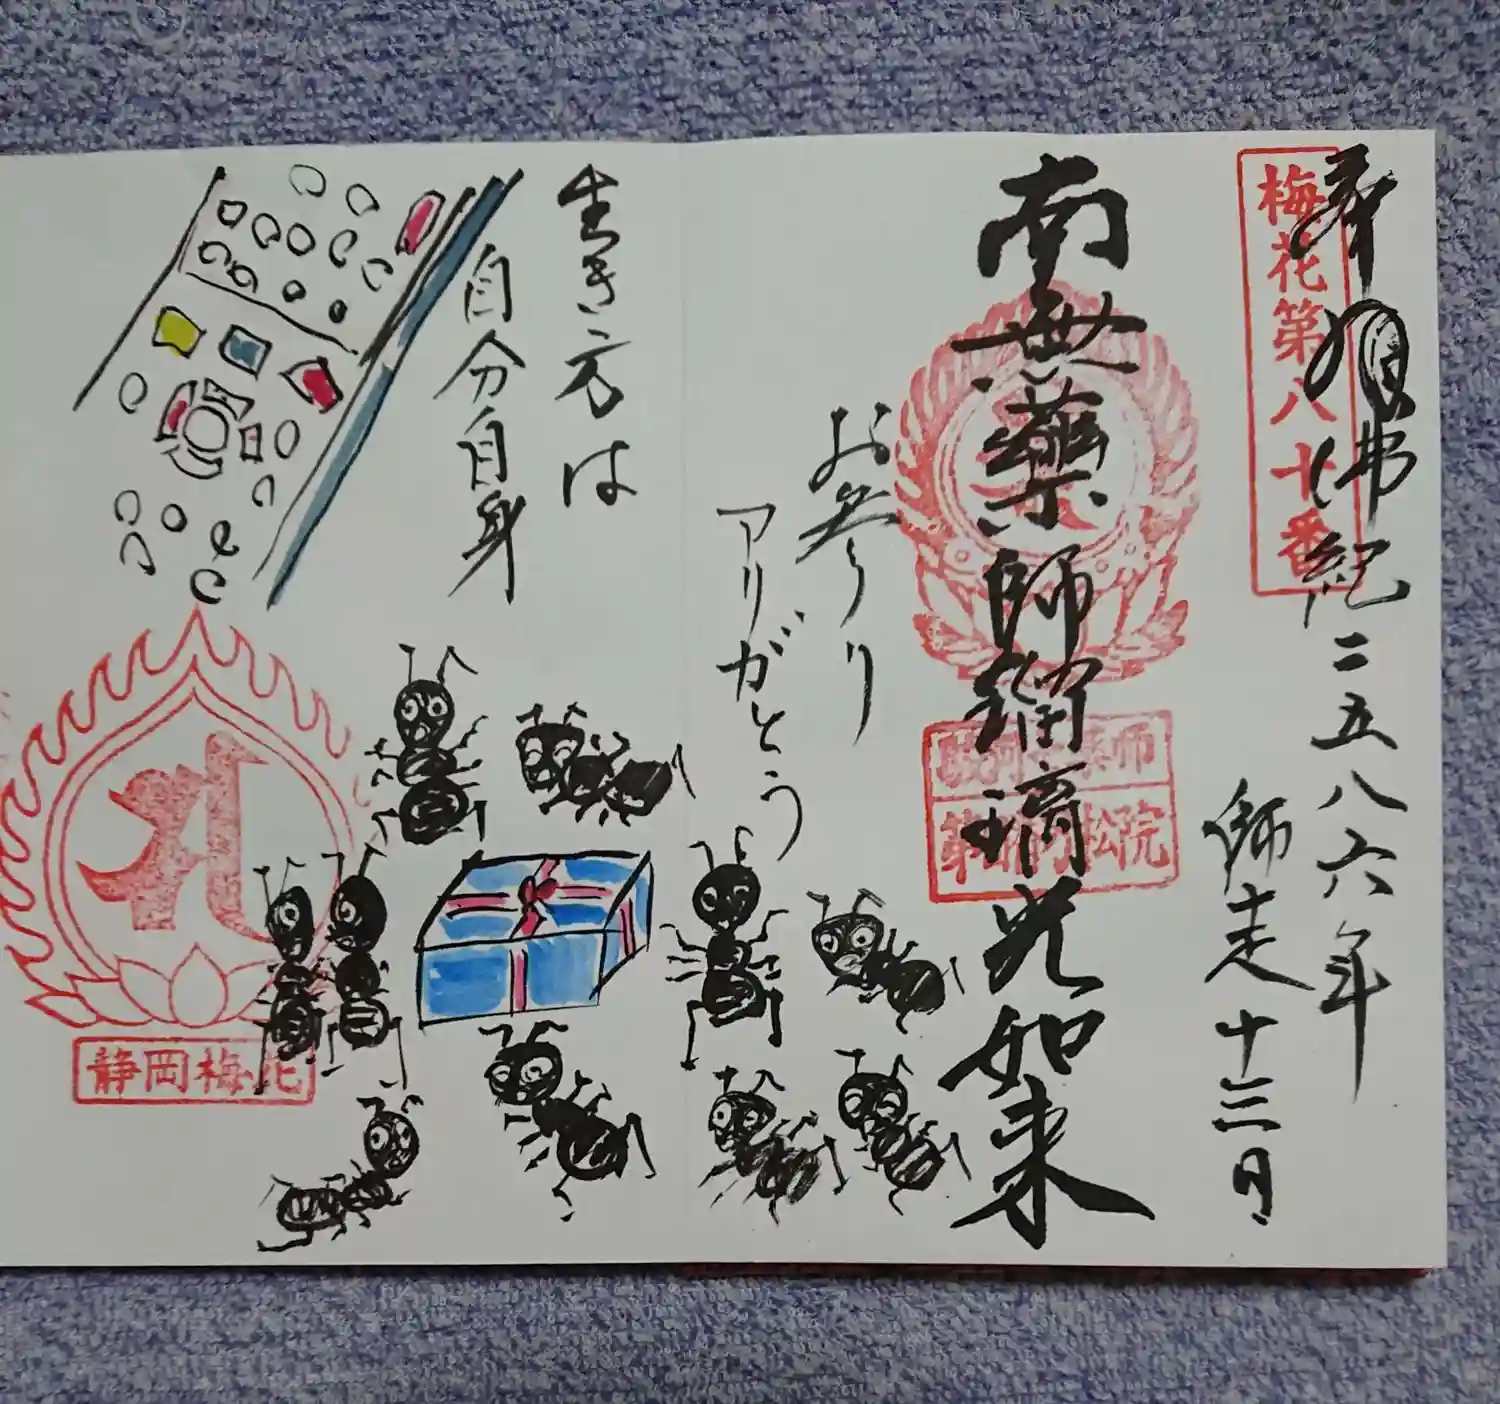 奉拝
佛紀二五八六年
師走十三日
梅花第八十番
南無薬師瑠璃光如来
お参り
アリガとう
生き方は
自分自身
静岡梅花